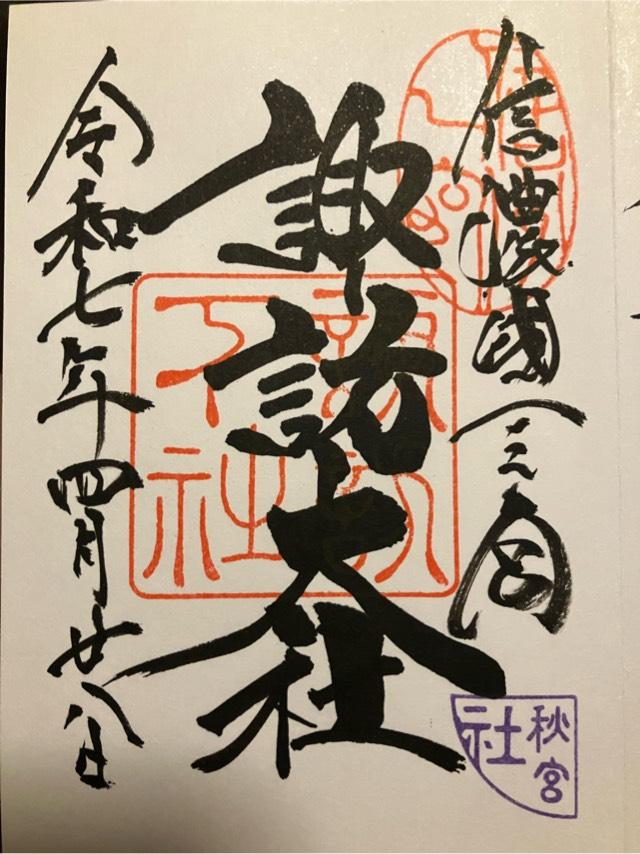 信濃國一之宮
諏訪大社
令和七年四月廿八日
諏訪
下社
秋宮
社